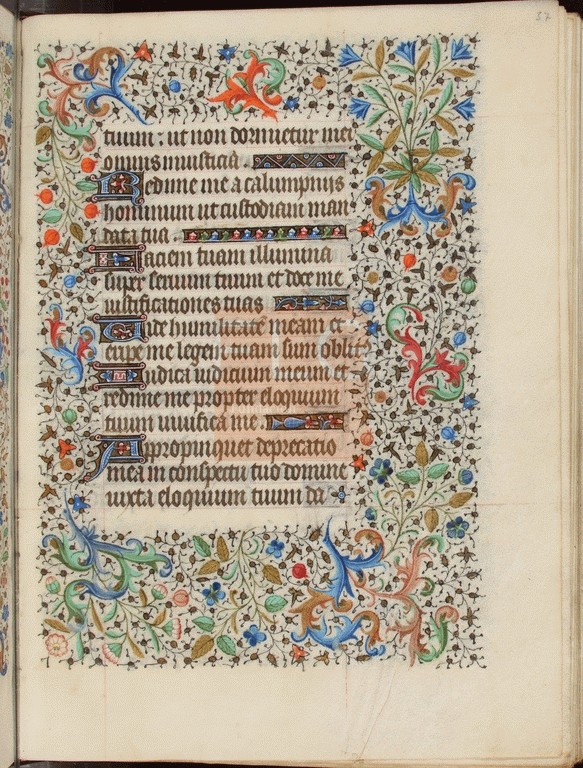 37
tuum : ut non dornnetur mei
omnis iniusticia .
Redime me a calumpniis
hominum ut custodiam man
data tua .
Faciem tuam illumina
super seruum tuum et doce me
iustificationes tuas
Vide humilitatē meam et
eripe me legem tuam sum oblit
Iudica iudicium meum et
redime me propter eloquium
tuum uiuifica me .
Appropinquet deprecatio
mea in conspectu tuo domine
iuxta eloquium tuum da